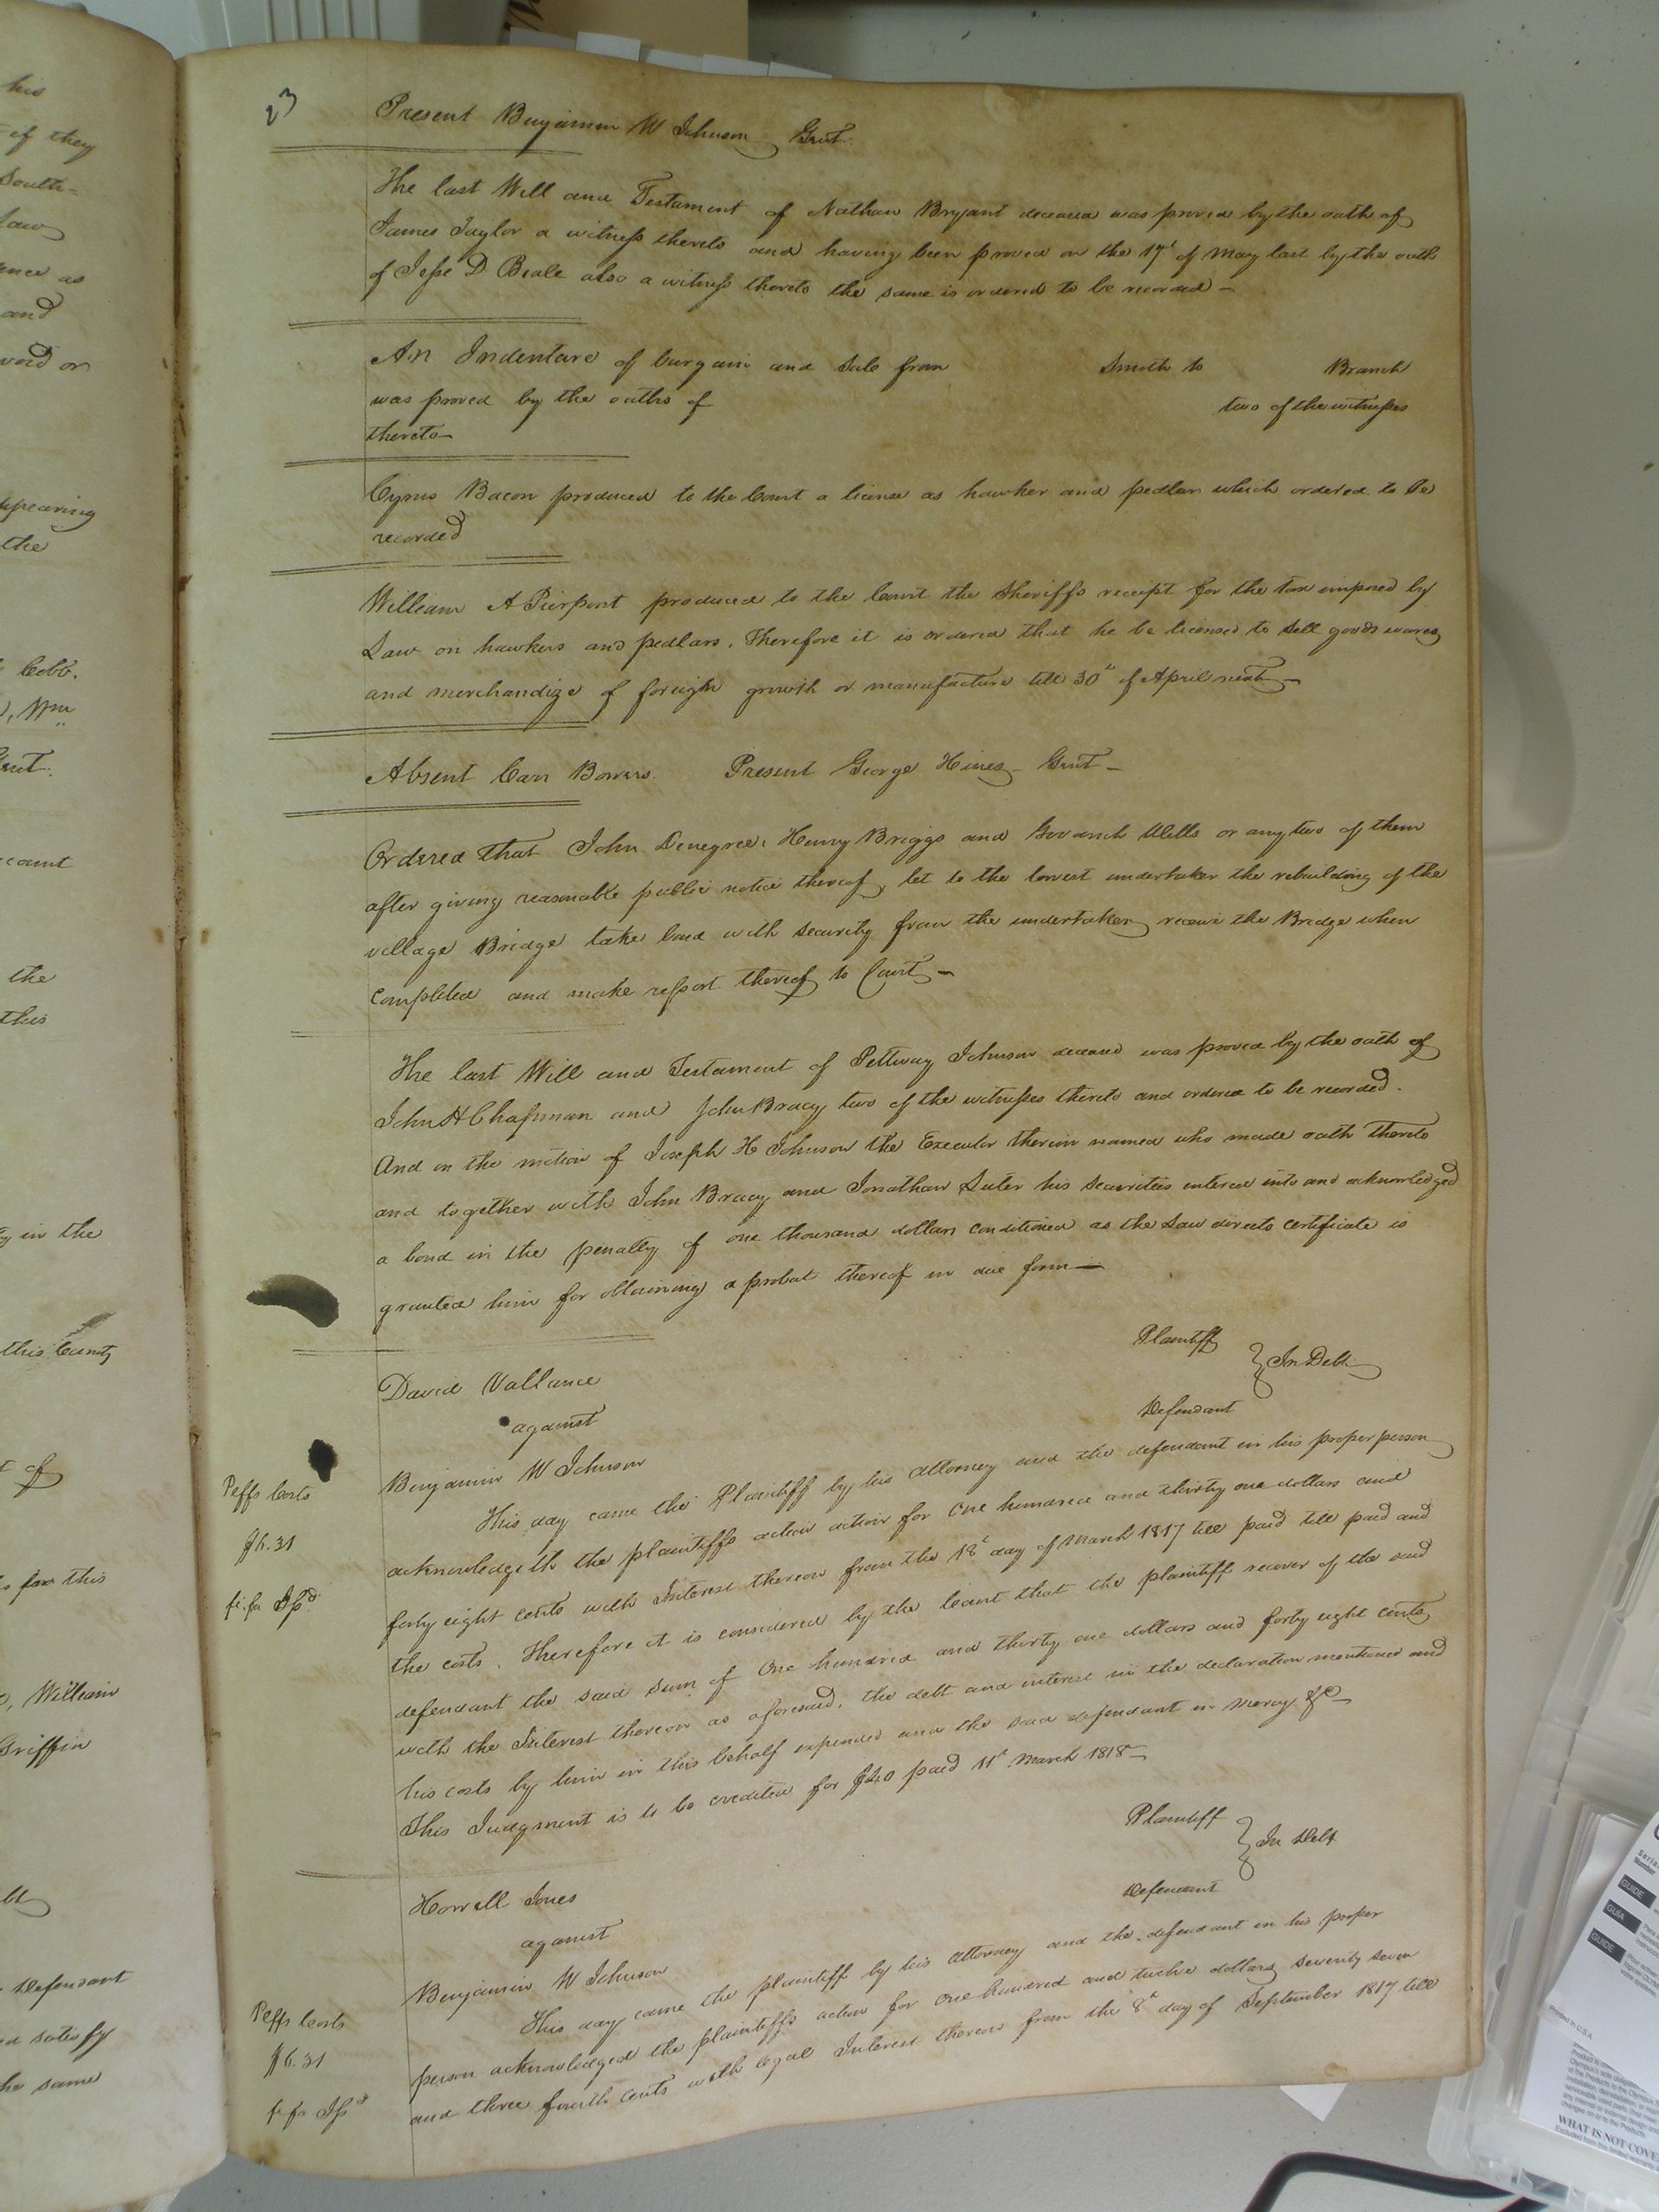 his
of they
South-
Law
ence as
and
void or
appearing
the
Cobb.
Wm
Gent.
count
the
this
in the
this County
of
for this
William
Griffin
Defendant
satisfy
the same
23
Present Benjamin W Johnson Gent.
The last Will and Testament of Nathan Bryant deceased was proved by the oath of
James Taylor a witness thereto and having been proved on the 17t of May last by the oath
of Jesse D Beale also a witness thereto the same is ordered to be recorded –
An Indenture of bargain and Sale from Smith to Branch
was proved by the oaths of two of the witnesses
thereto–
Cyrus Bacon produced to the Court a license as hawker and pedlar which ordered to be
recorded
William A Pierpont produced to the Court the Sheriffs receipt for the tax imposed by
Law on hawkers and pedlars, Therefore it is ordered that he be licensed to sell goods wares
and merchandize of foreign growth or manufacture till 30th of April next –
Absent Carr Bowers. Present George Hines – Gent –
Ordered that John Denegree, Henry Briggs and Wells or any two of them
after giving reasonable public notice thereof, let to the lowest undertaker the rebuilding of the
village Bridge take bond with security from the undertaker, receive the Bridge when
completed and make report thereof to Court –
The last Will and Testament of Pettway Johnson deceased was proved by the oath of
John H Chapman and John Bracy two of the witnesses thereto and ordered to be recorded.
And on the motion of Joseph H Johnson the Executor therein named who made oath thereto
and together with John Bracy and Jonathan Luter his securities entered into and acknowledged
a bond in the penalty of one thousand dollars conditioned as the Law directs certificate is
granted him for obtaining a probat thereof in due form –
David Vallance Plaintiff
against } In Debt
Benjamin W Johnson Defendant
This day came the Plaintiff by his attorney and the defendant in his proper person
acknowledgeth the plaintiffs action action for One hundred and thirty one dollars and
forty eight cents with Interest thereon from the 18t day of March 1817 till paid till paid and
the costs. Therefore it is considered by the Court that the plaintiff recover of the said
defendant the said sum of One hundred and thirty one dollars and forty eight cents
with the Interest thereon as aforesaid, the debt and interest in the declaration mentioned and
his costs by him in this behalf expended and the said defendant in mercy &c –
This Judgment is to be credited for $40 paid 11t March 1818 –
Peffs Costs
$6.31
fi.fa Issd
Howell Jones Plaintiff
against } In Debt
Benjamin W Johnson Defendant
This day came the plaintiff by his attorney and the defendant in his proper
person acknowledged the plaintiffs action for One hundred and twelve dollars seventy seven
and three fourths cents with legal Interest thereon from the 8t day of September 1817 till
Peffs Costs
$6.31
fi fa Issd
GUIDE
GUIA
GUIDE
Printed in U.S.A.
WHAT IS NOT COVE